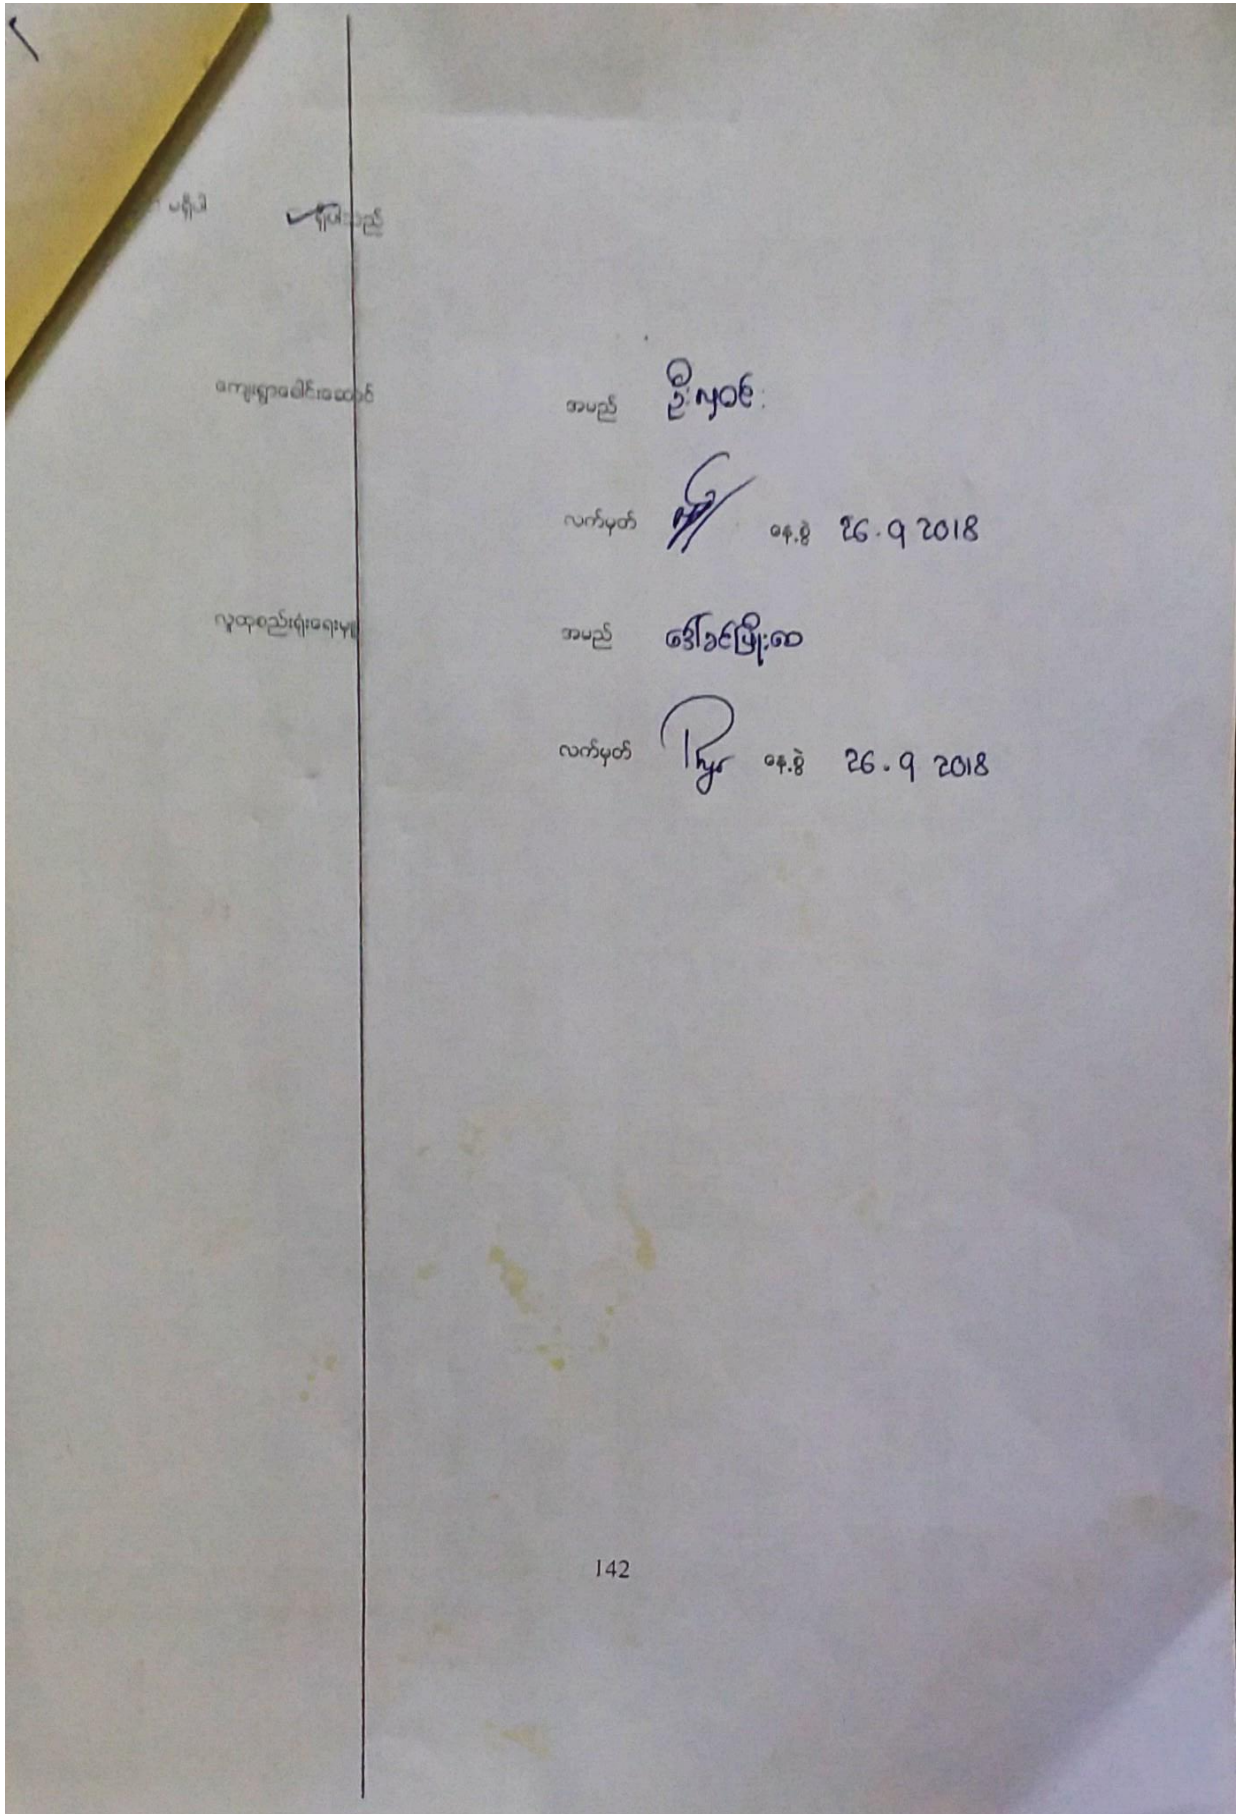 မရှိပါ ရှိပါသည်
ကျေးရွာခေါင်းဆောင် အမည် ဦးလှဝင်း
လက်မှတ် နေ့စွဲ 26.9 2018
လူထုစည်းရုံးရေးမှူး အမည် ဒေါ်ခင်ဖြိုးဝေ
လက်မှတ် နေ့စွဲ 26.9 2018
142